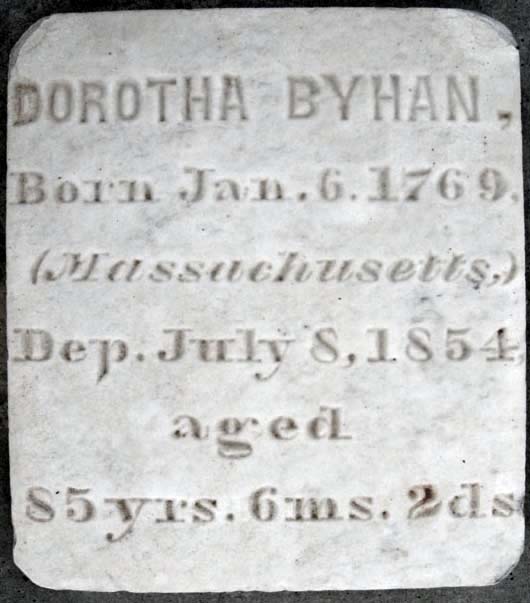 DOROTHA BYHAN,
Born Jan. 6. 1769.
(Massachusetts,)
Dep. July 8, 1854,
aged
85 yrs. 6 ms. 2 ds